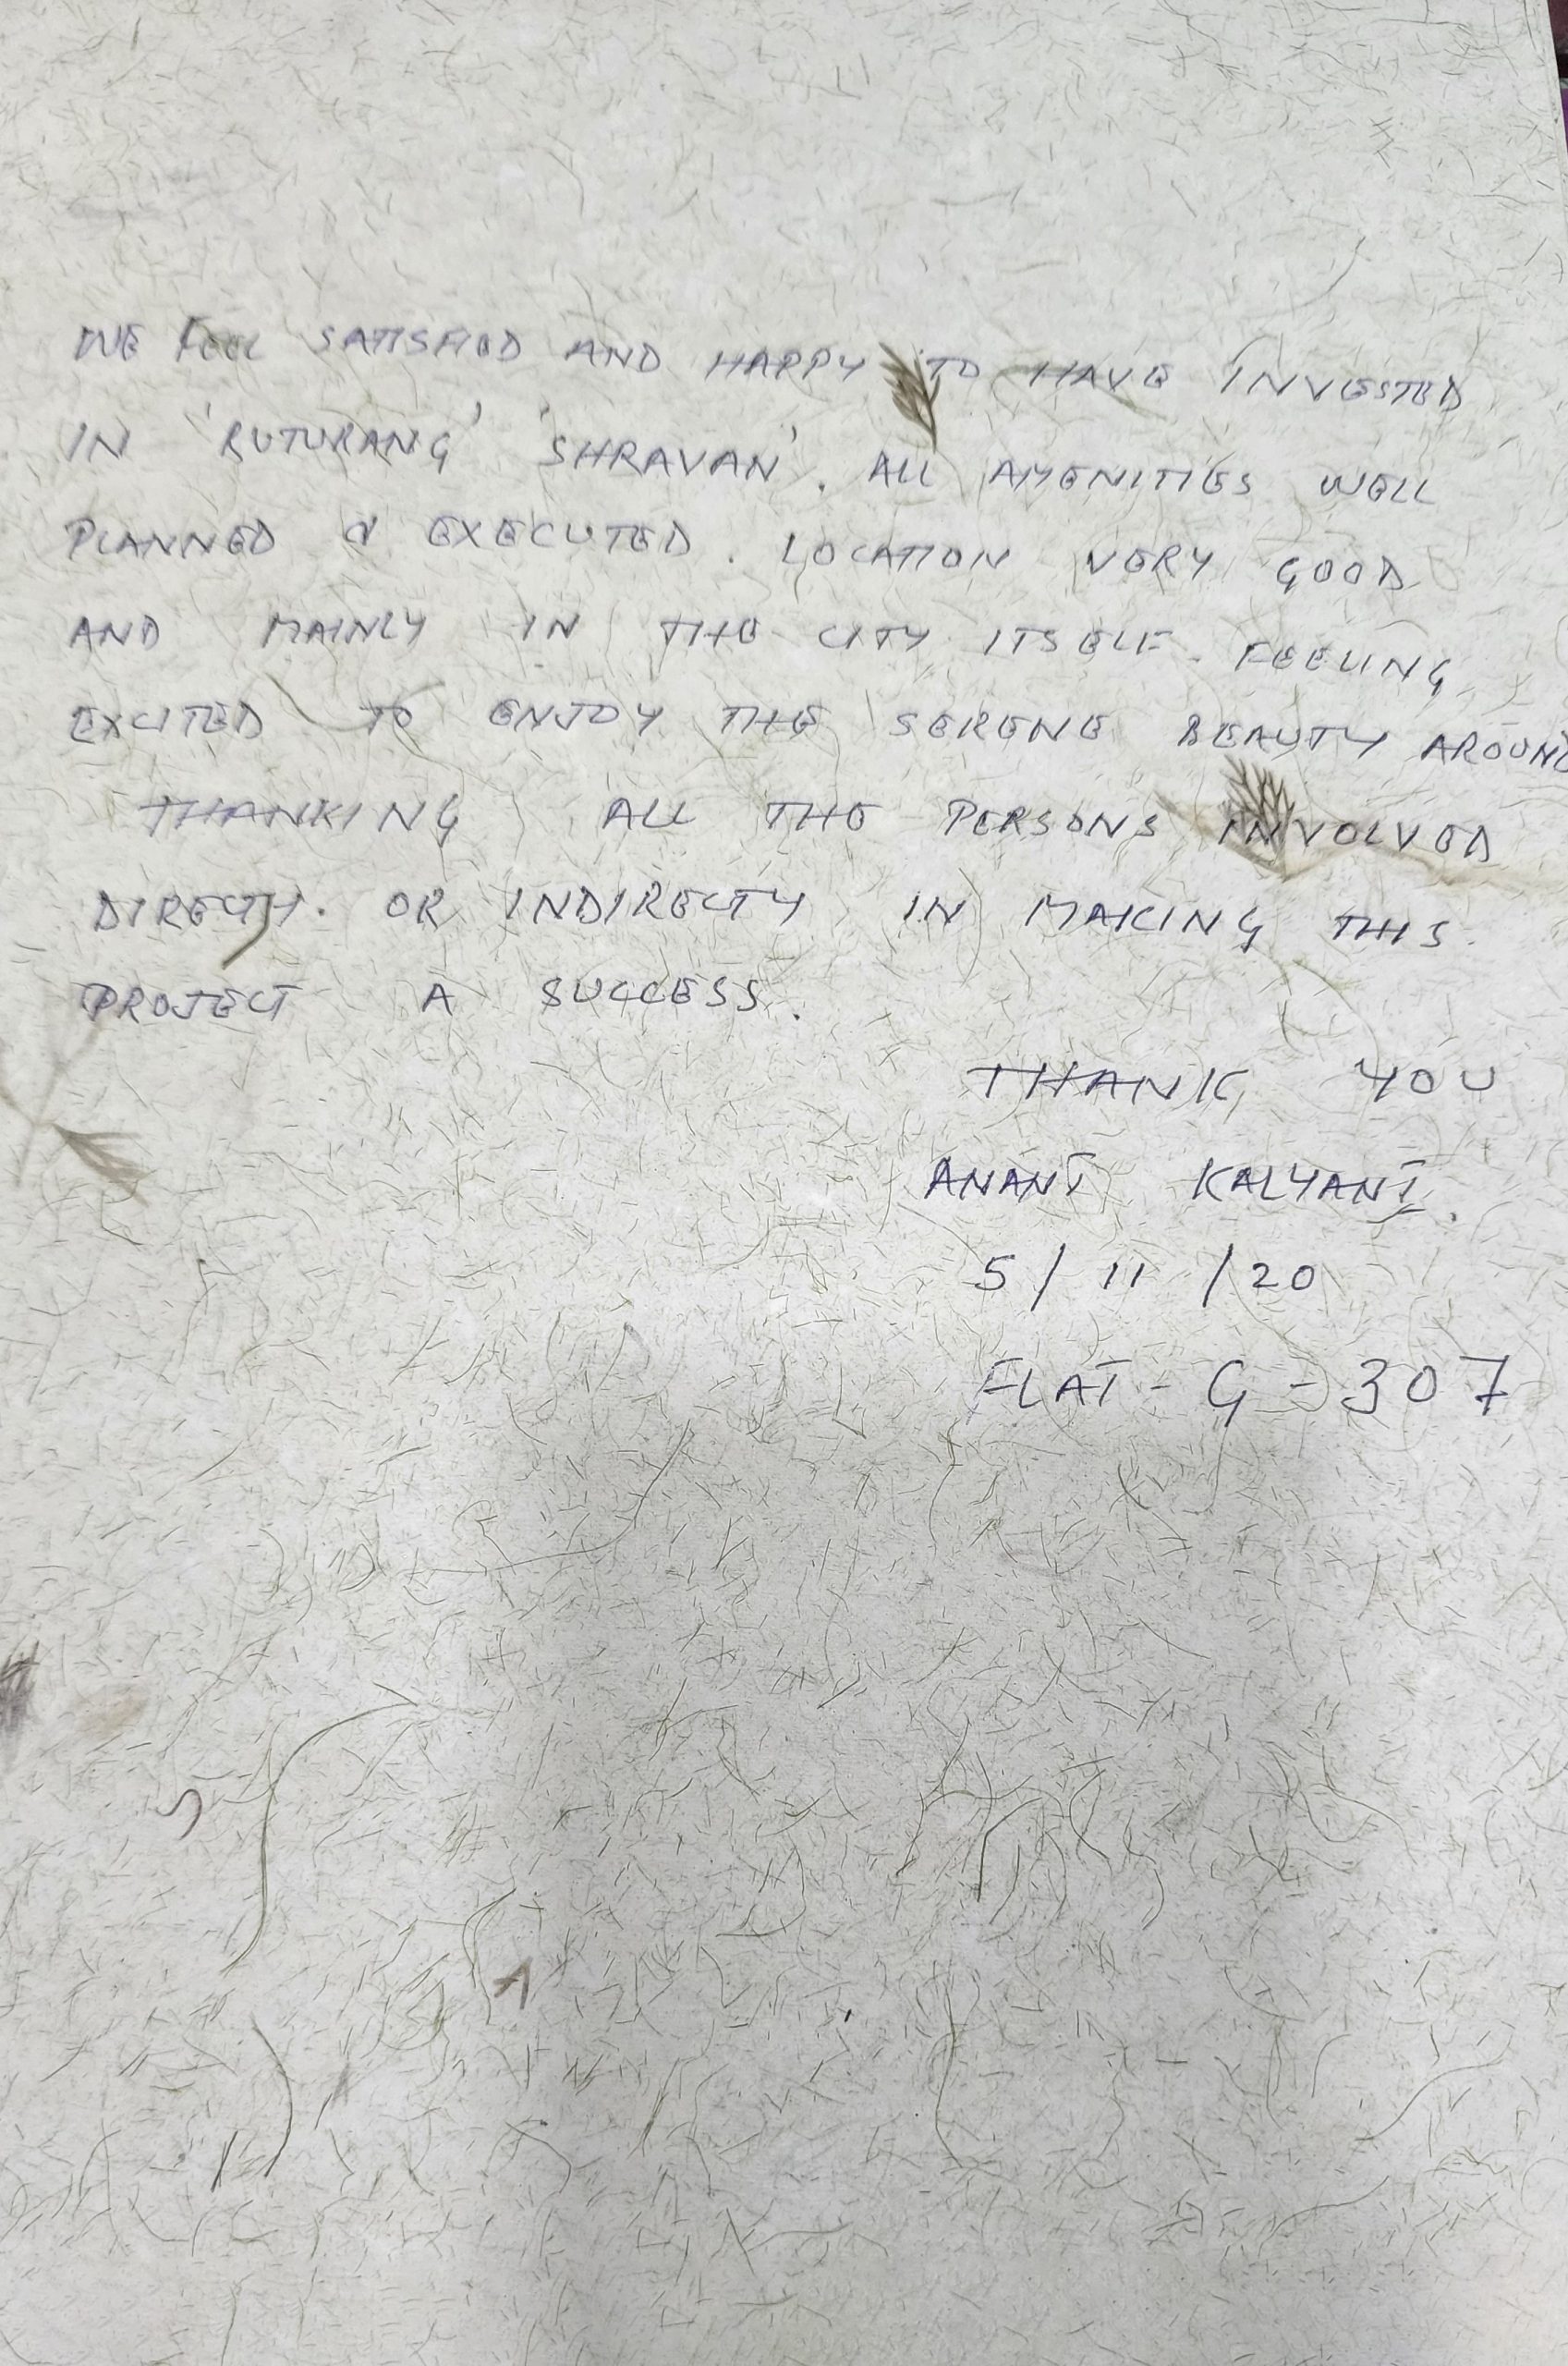 WE FEEL SATISFIED AND HAPPY TO HAVE INVESTED
IN 'RUTURANG' 'SHRAVAN'. ALL AMENITIES WELL
PLANNED & EXECUTED. LOCATION VERY GOOD
AND MAINLY IN THE CITY ITSELF. FEELING
EXCITED TO ENJOY THE SERENE BEAUTY AROUND
THANKING ALL THE PERSONS INVOLVED
DIRECTY. OR INDIRECTY IN MAKING THIS.
PROJECT A SUCCESS.
THANK YOU
ANANT KALYANI.
5/11/20
FLAT - G - 307